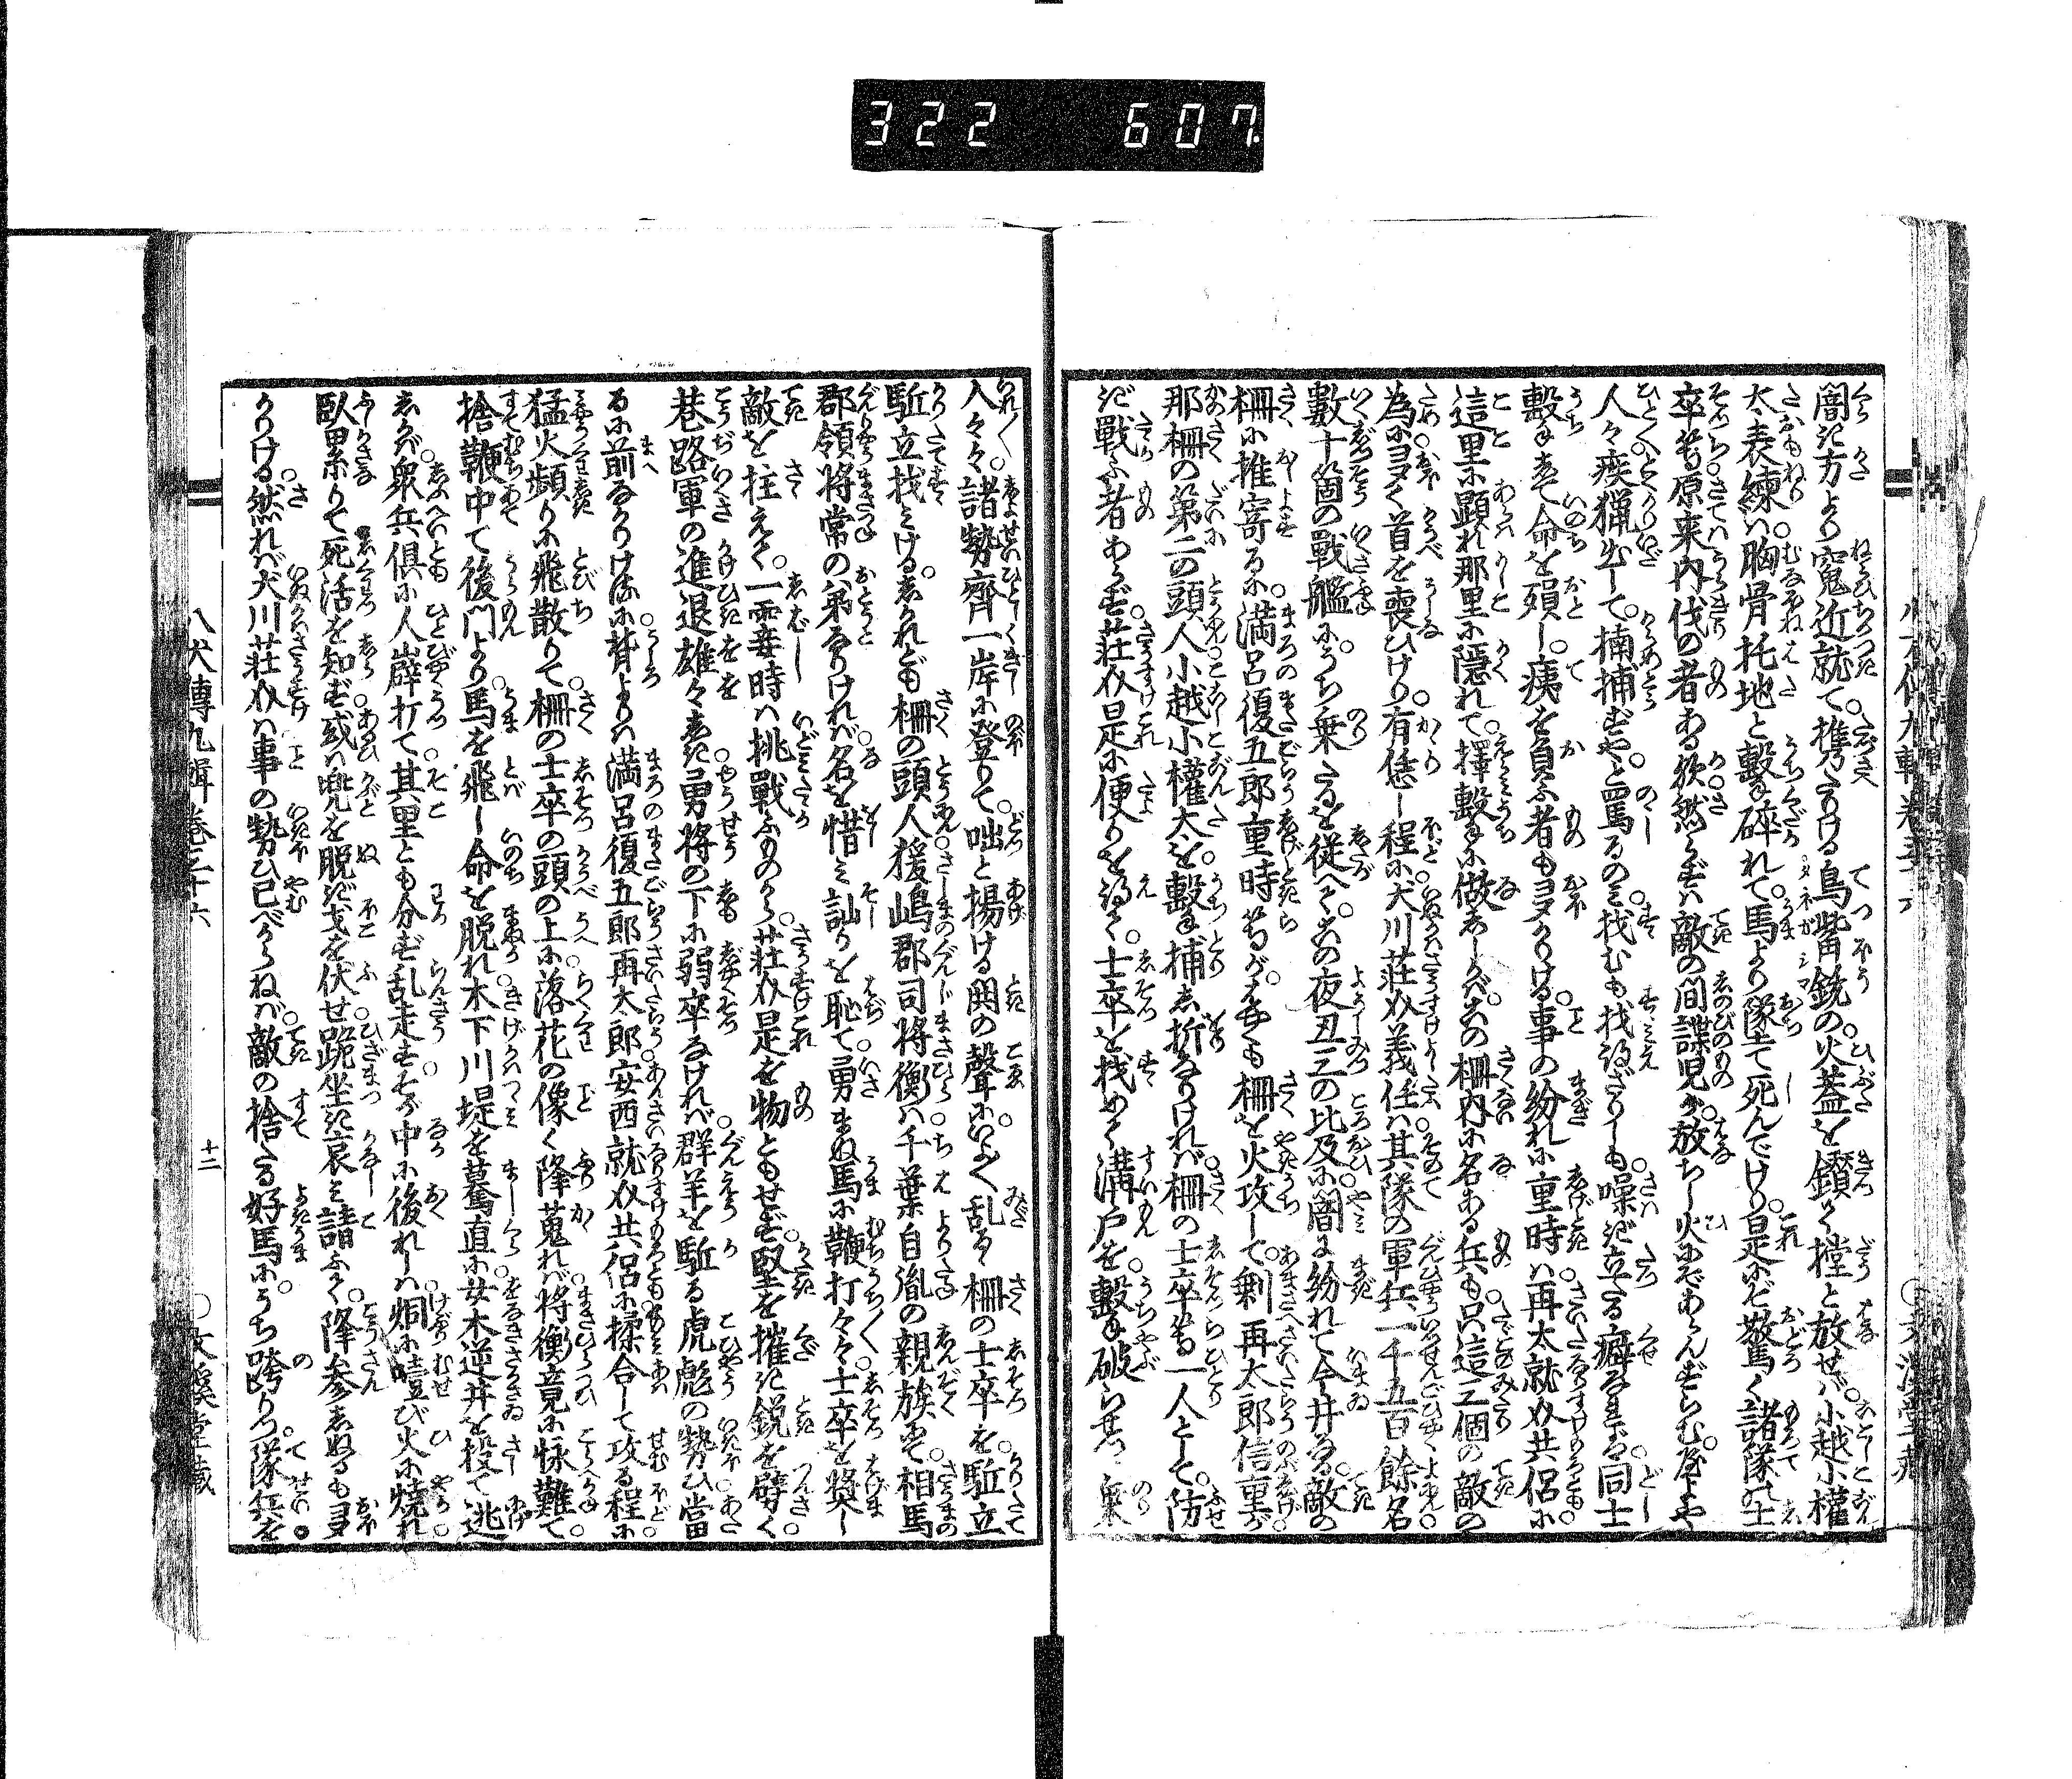 322 607
闇き方より窺近就て。携たりける鳥嘴銃の。火葢を鑽て撲と放せバ。小越小權
太表練ハ胸骨托地と撃碎れて。馬より墜て死んでけり。是にぞ驚く諸隊の士
卒等。原来内伐の者ある欤。然らずハ敵の間諜児が。放ちし火にぞあらんずらむ。
人々疾獵出して。擒捕ずや。と罵るのミ找むも找得ざりしも。噪ぎ立たる癖なれバ。同士
撃して命を殞し。痍を負ふ者も多かりける。事の紛れに重時ハ。再太就介共侶に
這里に顕れ那里に隠れて。擇撃に做しかバ。この柵内に名ある兵も。只這三個の敵の
為に。多く首を喪ひけり。有恁し程に犬川荘介義任ハ。其隊の軍兵一千五百餘名
數十箇の戰艦に。うち乗たるを従へて。この夜丑三の比及に。闇に紛れて今井なる。敵の
柵に推寄るに。満呂復五郎重時等が。はや柵を火攻して。剰再太郎信重が
那柵の第二の頭人。小越小權太を。撃捕え折なりけれバ。柵の士卒等一人として。防
ぎ戰ふ者あらず。荘介是に便りを得て。士卒を找めて溝戸を。撃破らせつ乗
入々々。諸勢齊一岸に登りて。咄と揚ける鬨の聲に。いよゝ乱るゝ柵の士卒を。駈立
駈立找ミける。しかれども柵の頭人。援嶋郡司將衡ハ。千葉自胤の親族にて。相馬
郡領將常の弟なりけれバ。名を惜ミ訕りを恥て。勇まぬ馬に鞭打々々。士卒を奬し
敵を拄えて。一霎時ハ挑戰ふものから。荘介是を物ともせず。堅を摧き鋭を劈く
巷路軍の進退雄々しき。勇將の下に弱卒なけれバ。群羊を駈る虎彪の勢ひ。當
るに前なかりける。に。背よりハ満呂復五郎再太郎。安西就介共侶に。揉合して攻る程に。
猛火頻りに飛散りて。柵の士卒の頭の上に。落花の像く降蒐れバ。將衡竟に怺難て。
捨鞭中て後門より。馬を飛し命を脱れ。木下川堤を驀直に。女木逆井を投て逃
しかバ。衆兵倶に人礔打て。其里とも分ず乱走す。そが中に後れしハ。烟に噎び火に焼れ。
臥累りて死活を知ず。或ハ兜を脱ぎ戈を伏せ。跪坐き哀ミを請ふて。降参しぬるも多
かりける。然れバ犬川荘介ハ。事の勢ひ已べからねバ。敵の捨たる好馬に。うち跨りつ。隊兵を
八犬傳九輯巻三十六
十二
○文溪堂藏